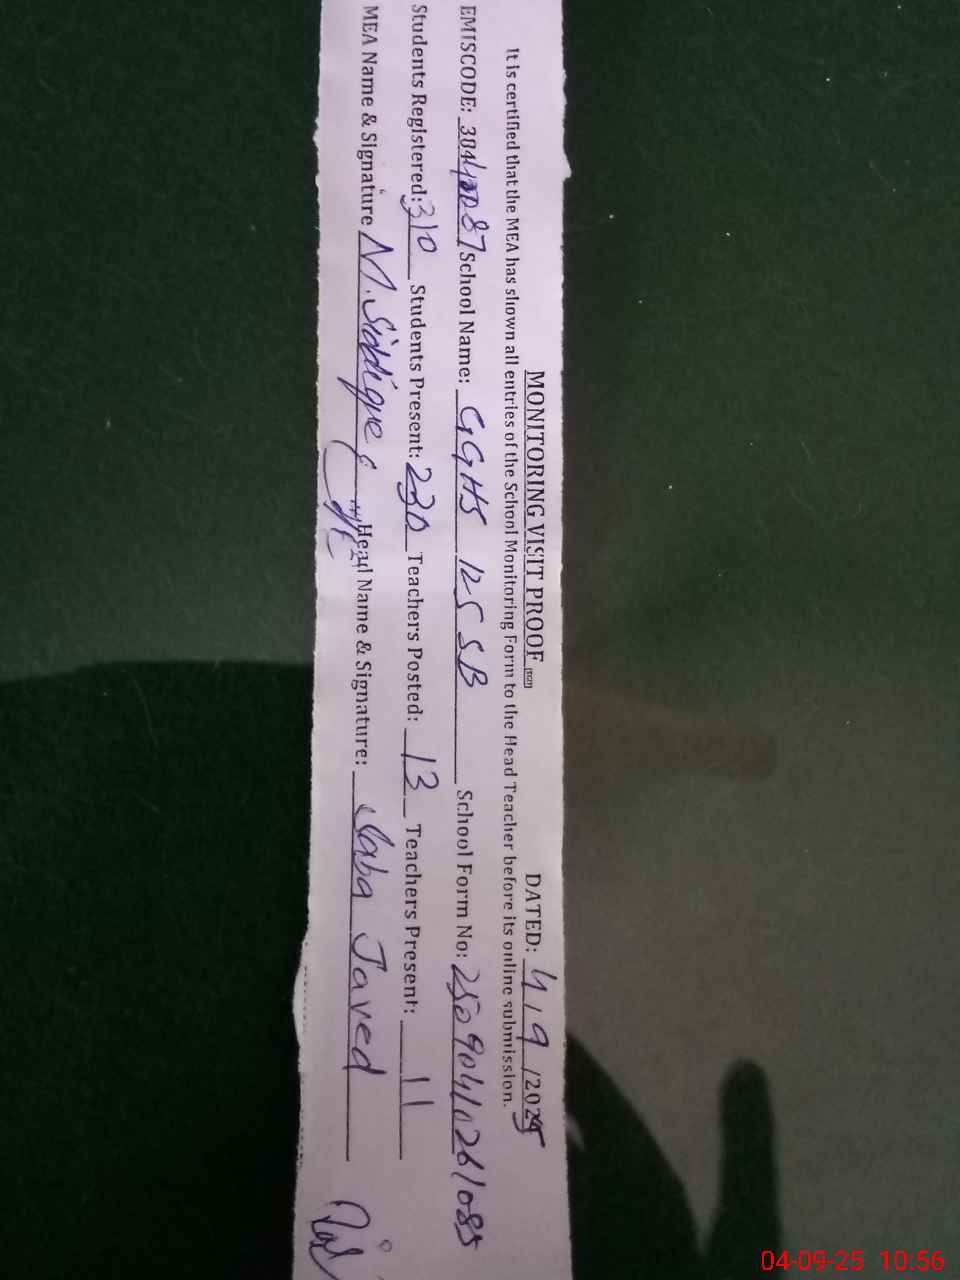 MONITORING VISIT PROOF DATED: 4/9/2025
It is certified that the MEA has shown all entries of the School Monitoring Form to the Head Teacher before its online submission.
EMISCODE: School Name: GGHS 125 SB School Form No: 25090410261085
Students Registered: 310 Students Present: 230 Teachers Posted: 13 Teachers Present: 11
MEA Name & Signature M. Siddique Head Name & Signature: Saba Javed
04-09-25 10:56